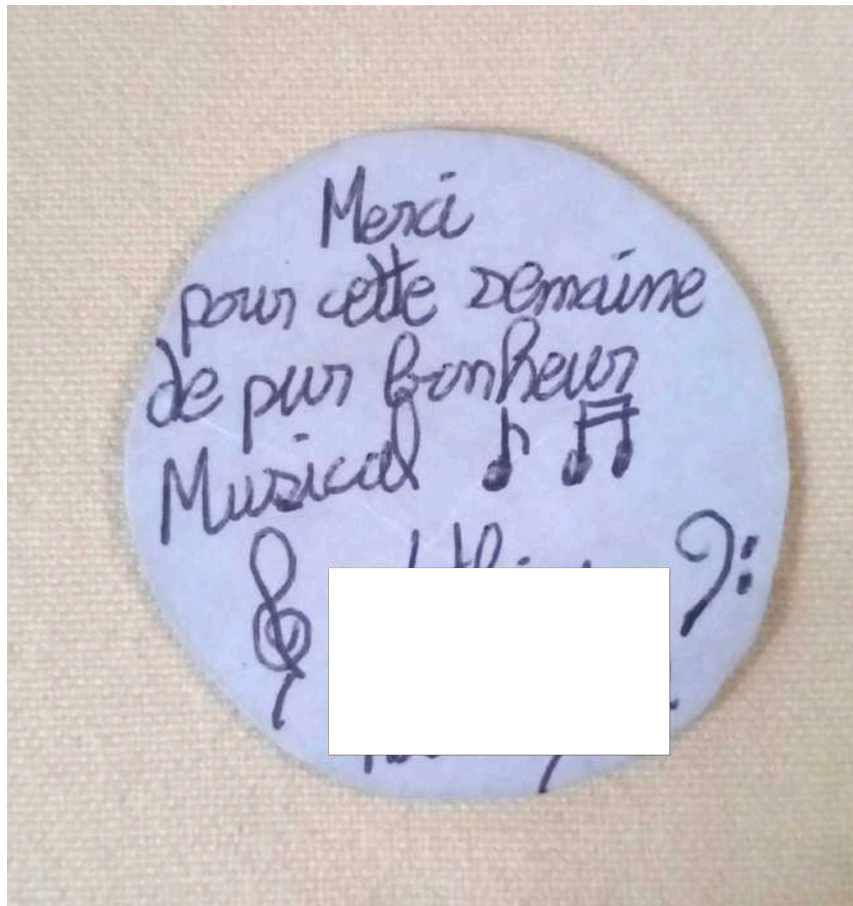 Merci
pour cette semaine
de pur bonheur
Musical